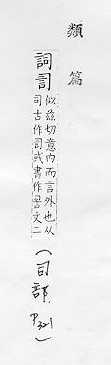 類篇
詞
似兹切意內而言外也从
司古作 或書作 文二
(司部 P321)